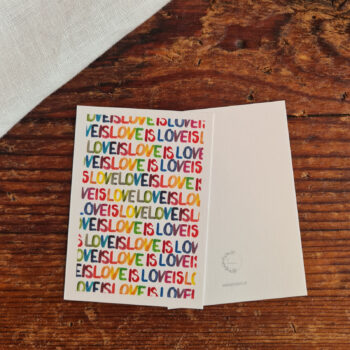 LOVE IS LOVE IS LOVE IS
LOVE IS LOVE IS LOVE
LOVE IS LOVE IS LOVE IS
LOVE IS LOVE IS LOVE
IS LOVE IS LOVE IS LOVE
IS LOVE IS LOVE IS LOVE
LOVE IS LOVE LOVE IS
IS LOVE IS LOVE IS LOVE
LOVE IS LOVE IS LOVE
LOVE IS LOVE IS LOVE IS
IS LOVE IS LOVE IS LOVE
LOVE IS LOVE IS LOVE IS
LOVE IS LOVE IS LOVE